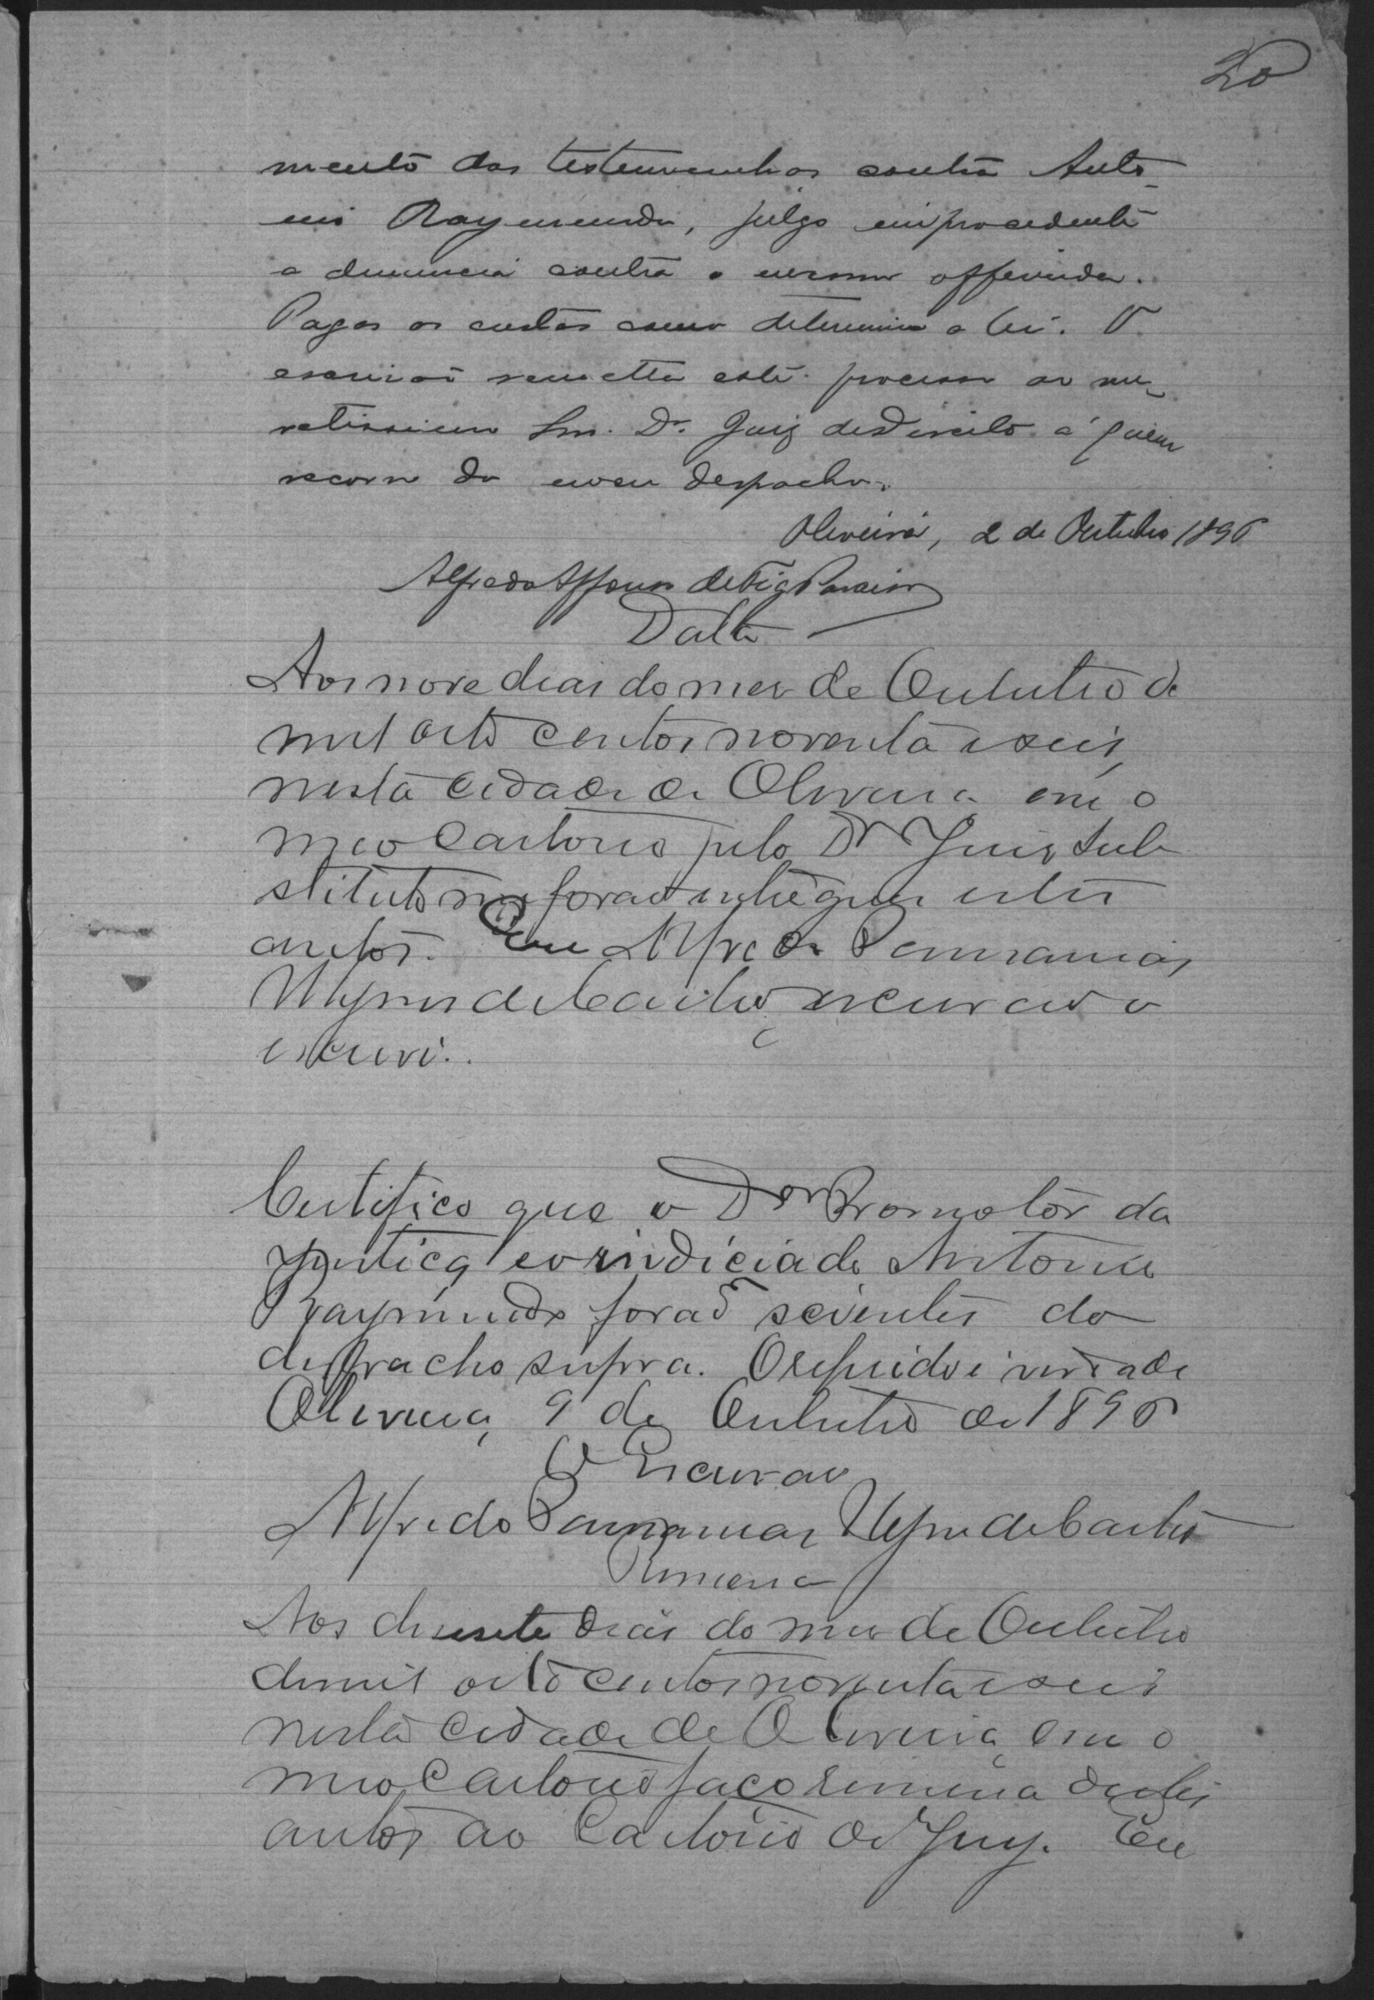 20
mento das testemunhas contra Anto-
nio Raymundo, julgo improcedente
a denuncia contra o mesmo offerecida.
Pagas as custas como determina a lei. O
escrivão remetta este processo ao me-
retissimo Snr. Dr. Juiz de Direito á quem
recorro do meu despacho.
Oliveira, 2 de Outubro 1896
Alfredo Affonso de
Data
Aos nove dias do mez de Outubro de
mil oito centos noventa e seis,
nesta cidade de Oliveira em o
meo Cartorio pelo Dr Juiz sub
stituto me forão entregues estes
autos. Eu Alfredo
de Castro, escrivão o
escrevi.
Certifico que o Dor Promotor da
Justiça e o indiciado Antonio
Raymundo forão scientes do
despacho supra. O referido é verdade
Oliveira, 9 de Outubro de 1896
O Escrivão
Alfredo de Castro
Remessa
Aos desesete dias do mez de Outubro
de mil oito centos noventa e seis
nesta cidade de Oliveira, em o
meo Cartorio faço remessa destes
autos ao Cartorio do Jury. Eu